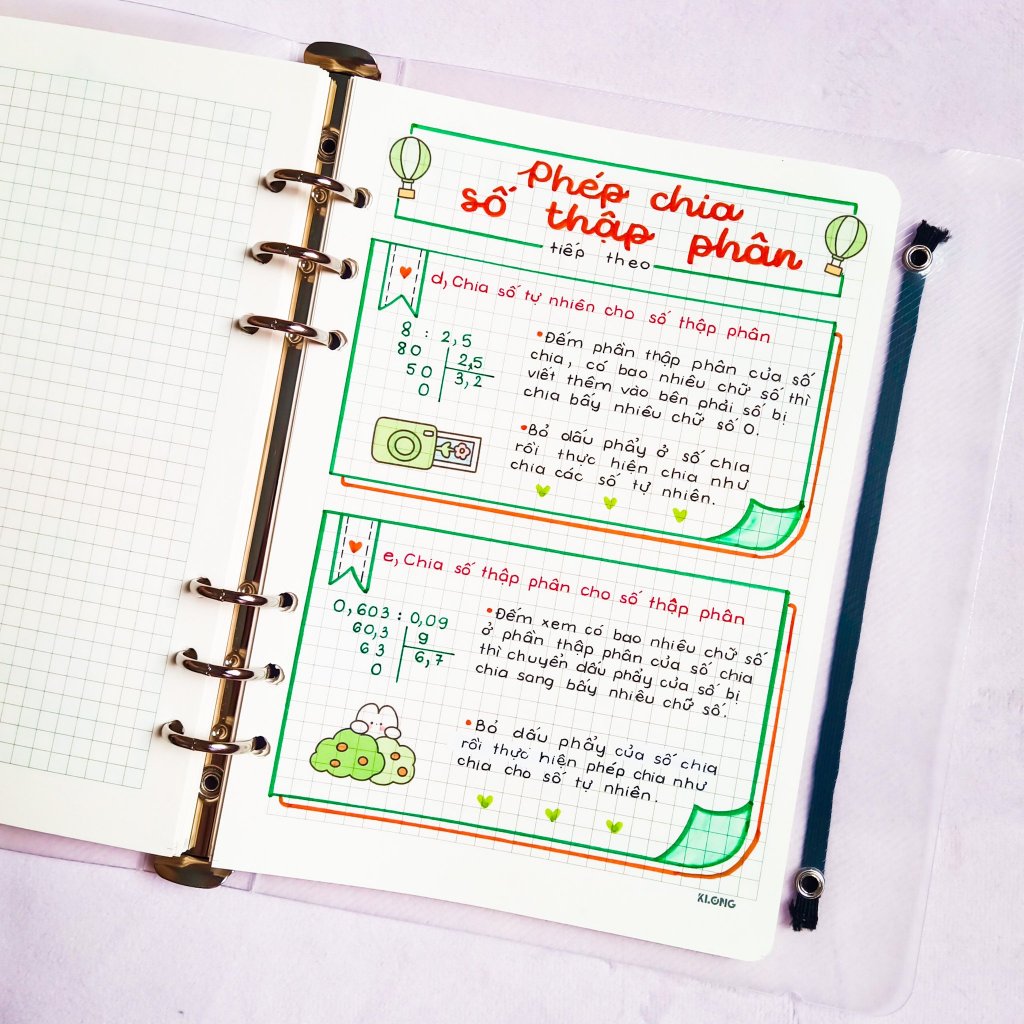 Phép chia
số thập phân
tiếp theo
d, Chia số tự nhiên cho số thập phân
8 : 2,5
80 2,5
50 3,2
0
•Đếm phần thập phân của số
chia, có bao nhiêu chữ số thì
viết thêm vào bên phải số bị
chia bấy nhiêu chữ số 0.
•Bỏ dấu phẩy ở số chia
rồi thực hiện chia như
chia các số tự nhiên.
e, Chia số thập phân cho số thập phân
0,603 : 0,09
60,3 9
63 6,7
0
•Đếm xem có bao nhiêu chữ số
ở phần thập phân của số chia
thì chuyển dấu phẩy của số bị
chia sang bấy nhiêu chữ số.
•Bỏ dấu phẩy của số chia
rồi thực hiện phép chia như
chia cho số tự nhiên.
KLONG